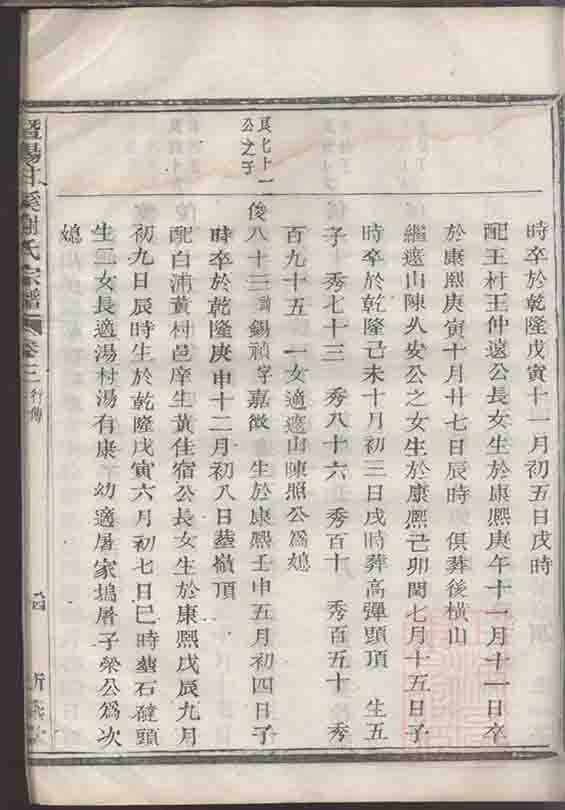 時卒於乾隆戊寅十一月初五日戌時
配王村王仲遠公長女生於康熙庚午十一月十一日卒
於康熙庚寅十月廿七日辰時 俱葬後橫山
繼遶山陳久安公之女生於康熙己卯閏七月十五日子
時卒於乾隆己未十月初三日戌時葬高彈頭頂 生五
子 秀七十三 秀八十六 秀百十 秀百五十 秀
百九十五 一女適遶山陳照公為媳
良七十一公之子
俊八十三諱錫禎字嘉徵 生於康熙壬申五月初四日子
時卒於乾隆庚申十二月初八日墓嶺頂
配白浦黃村邑庠生黃佳宿公長女生於康熙戊辰九月
初九日辰時生於乾隆戊寅六月初七日巳時墓石礳頭
生二女長適湯村湯有康 幼適屠家塢屠子榮公為次
媳
暨陽甘溪謝氏宗譜 卷三 行傳 四